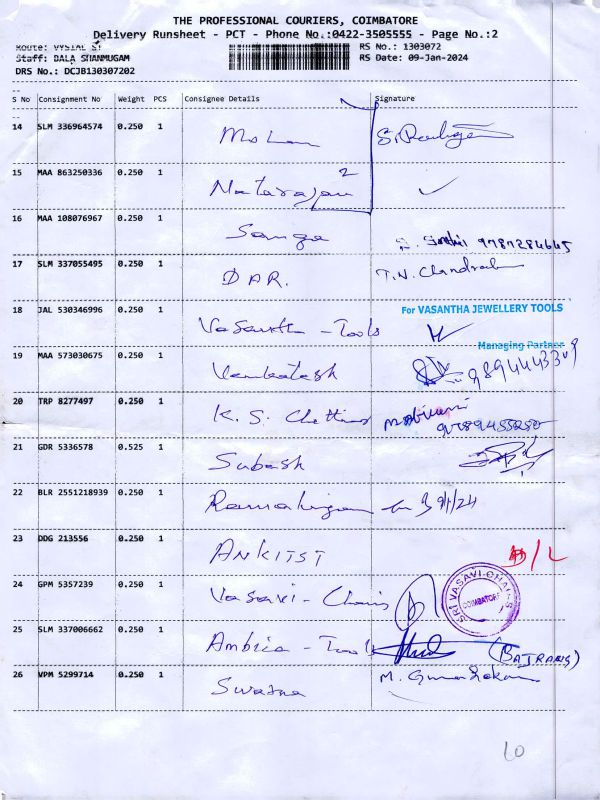 THE PROFESSIONAL COURIERS, COIMBATORE
Delivery Runsheet - PCT - Phone No.:0422-3505555 - Page No.:2
Route: VYSIAL ST
RS No.: 1303072
Staff: BALA SHANMUGAM
RS Date: 09-Jan-2024
DRS No.: DCJB130307202
S No Consignment No Weight PCS Consignee Details Signature
14 SLM 336964574 0.250 1 Mohan
15 MAA 863250336 0.250 1 Natarajan 2
16 MAA 108076967 0.250 1 9787284645
17 SLM 337055495 0.250 1 DAR. T.N. Chandra
For VASANTHA JEWELLERY TOOLS
18 JAL 530346996 0.250 1 Vasantha - Tools
Managing Partner
19 MAA 573030675 0.250 1 Venkatesh 9894443309
20 TRP 8277497 0.250 1 K. S. Chettiar
21 GDR 5336578 0.525 1 Subash
22 BLR 2551218939 0.250 1 9/1/24
23 DDG 213556 0.250 1
24 GPM 5357239 0.250 1 Vasavi - Chains
SRI VASAVI CHAINS
COIMBATORE
25 SLM 337006662 0.250 1 Ambica - Tools (BAJRANG)
26 VPM 5299714 0.250 1 Swarna
10